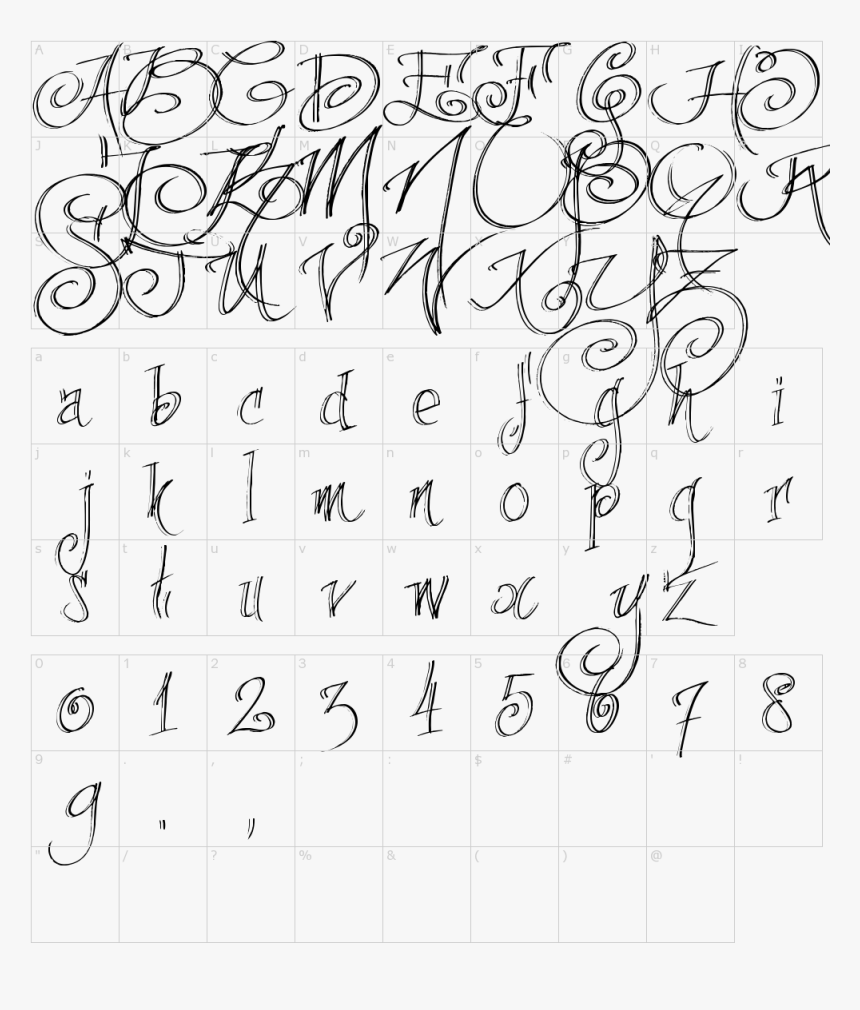 A B C D E F G H I
A B C D E F G H I
J K L M N O P Q R
J K L M N O P Q R
S T U V W X Y Z
S T U V W X Y Z
a b c d e f g h i
a b c d e f g h i
j k l m n o p q r
j k l m n o p q r
s t u v w x y z
s t u v w x y z
0 1 2 3 4 5 6 7 8
0 1 2 3 4 5 6 7 8
9 . , ; : $ # ' !
9 . ,
" / ? % & ( ) @